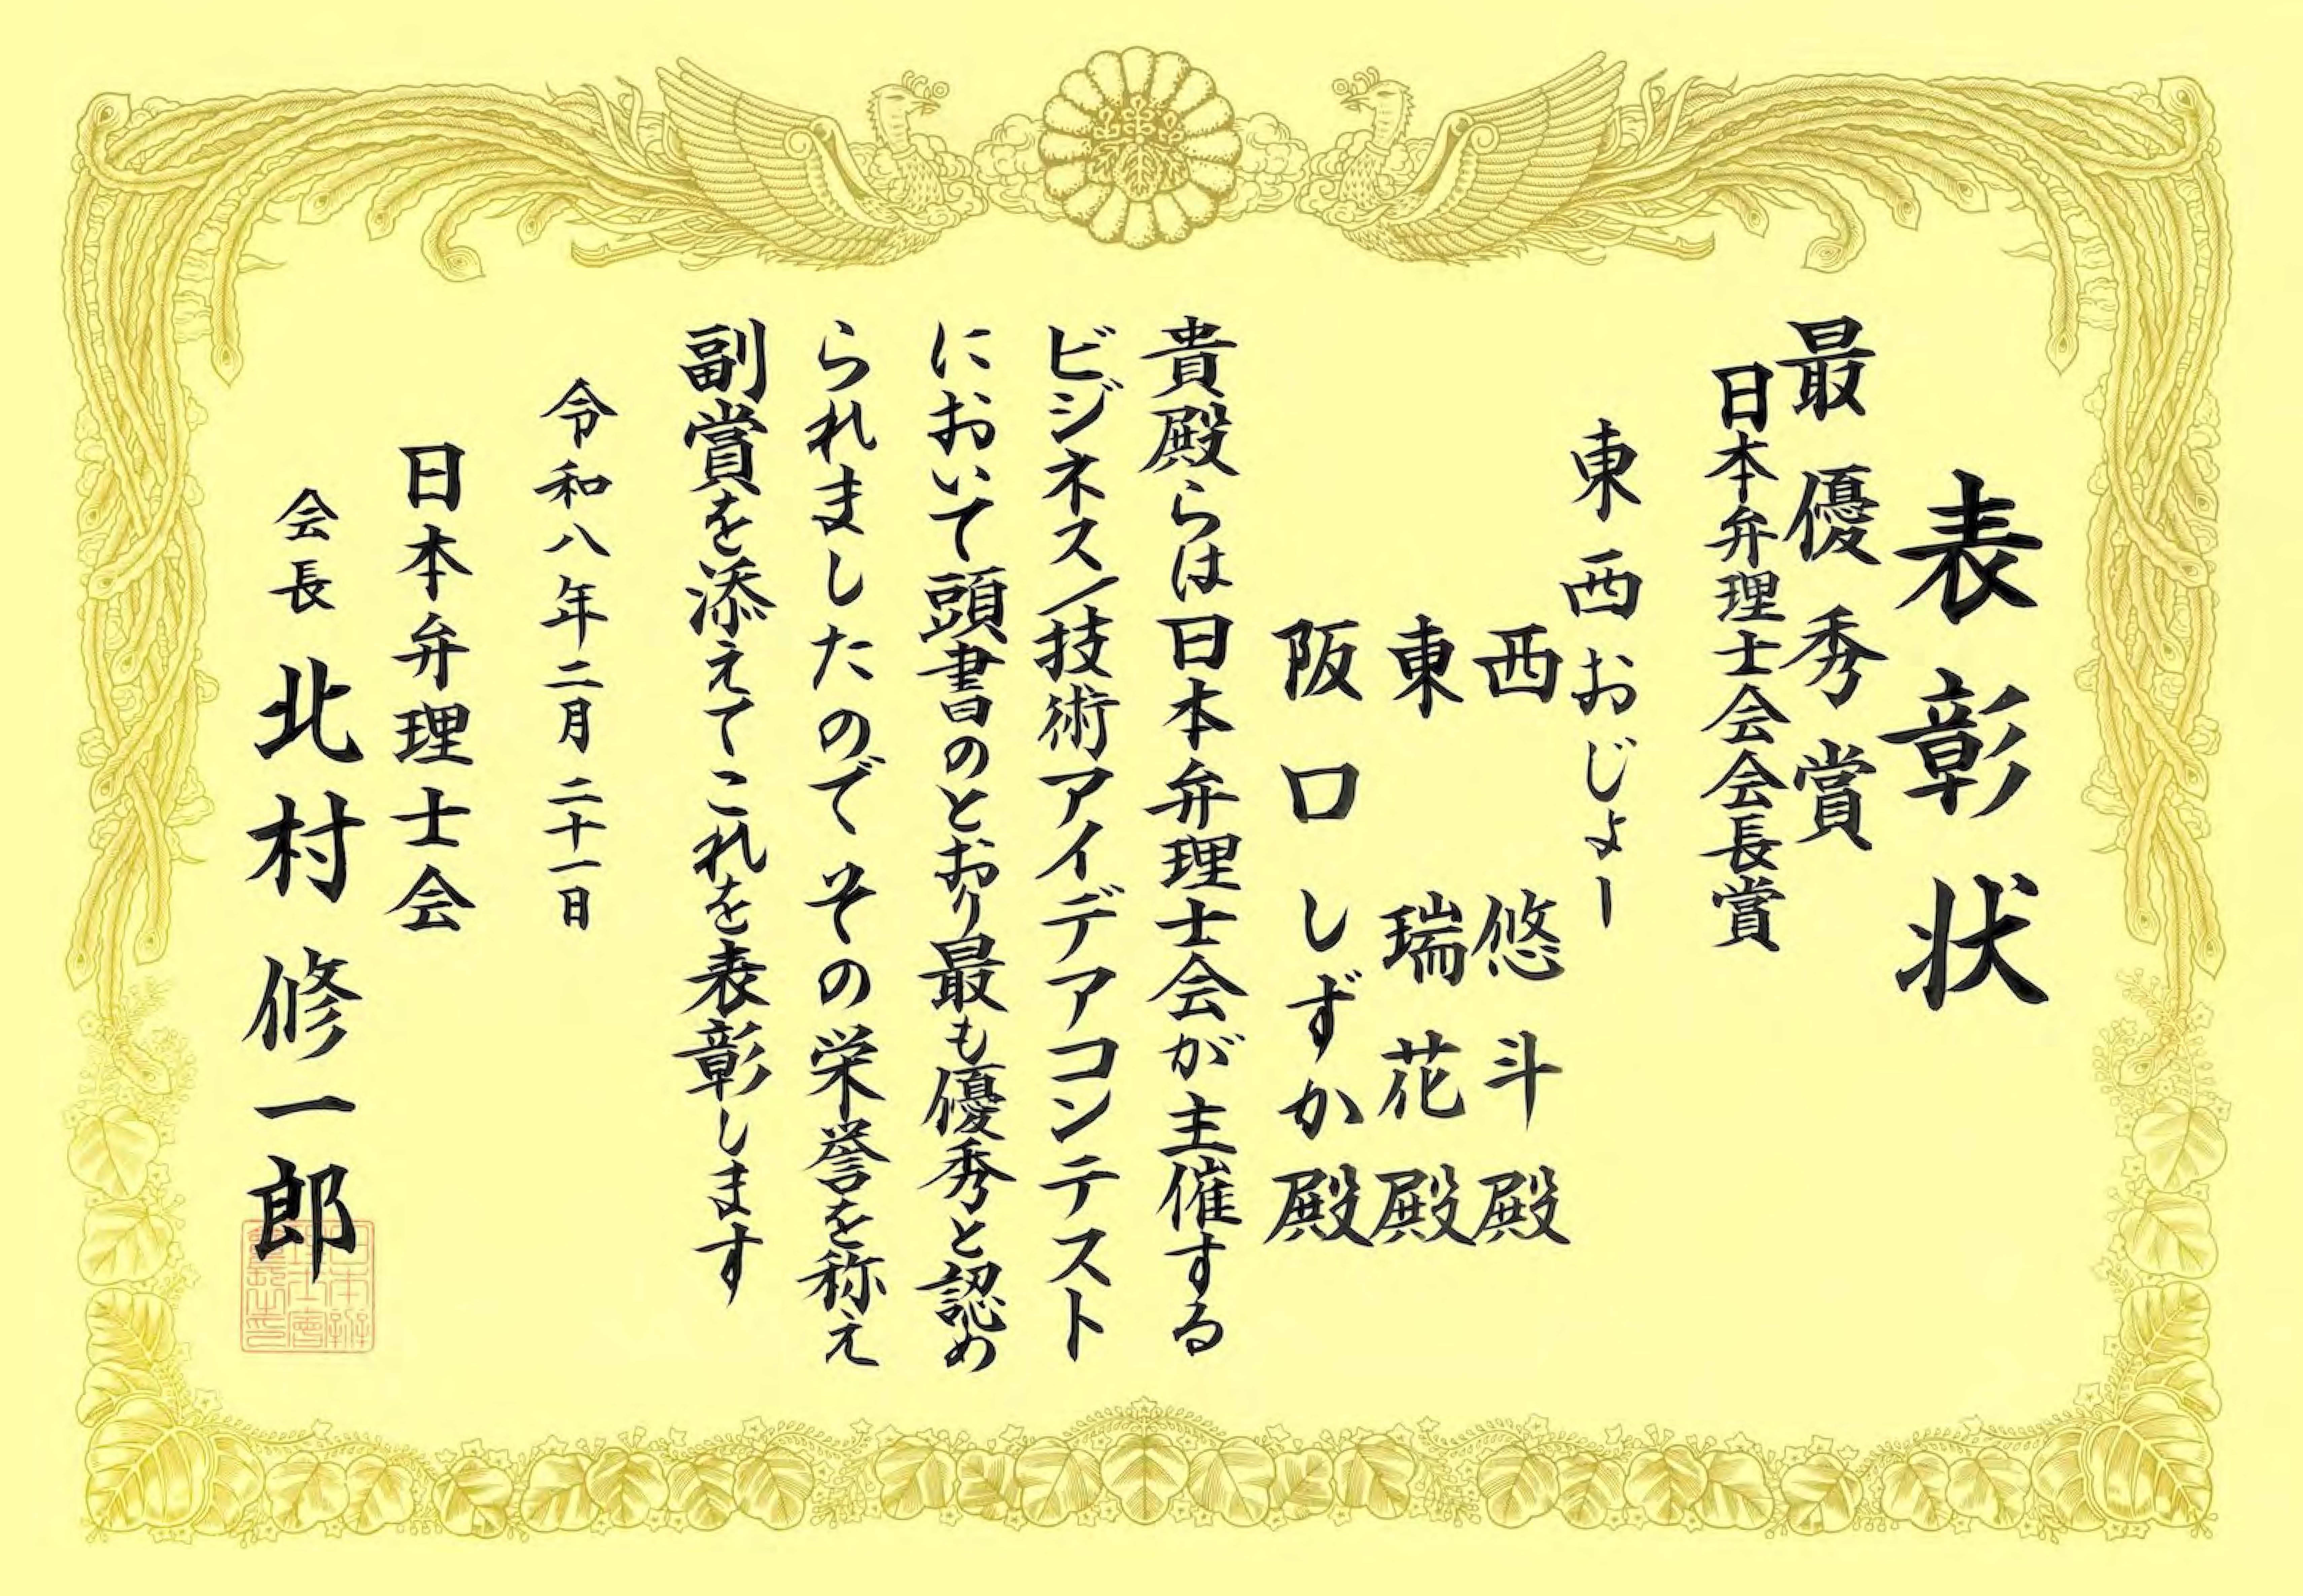 表彰状
最優秀賞
日本弁理士会会長賞
東西おじょー
西 悠斗殿
東 瑞花殿
阪口しずか殿
貴殿らは日本弁理士会が主催する
ビジネス/技術アイデアコンテスト
において頭書のとおり最も優秀と認め
られましたのでその栄誉を称え
副賞を添えてこれを表彰します
令和八年二月二十一日
日本弁理士会
会長 北村修一郎